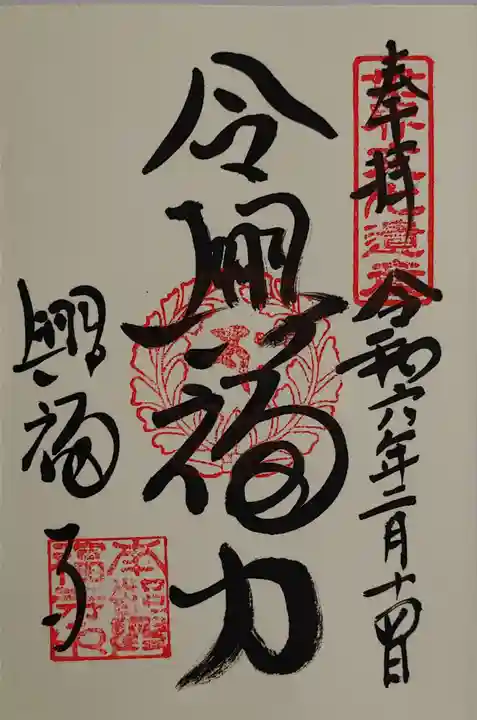 奉拝 令和六年二月十四日
令興福力
興福寺